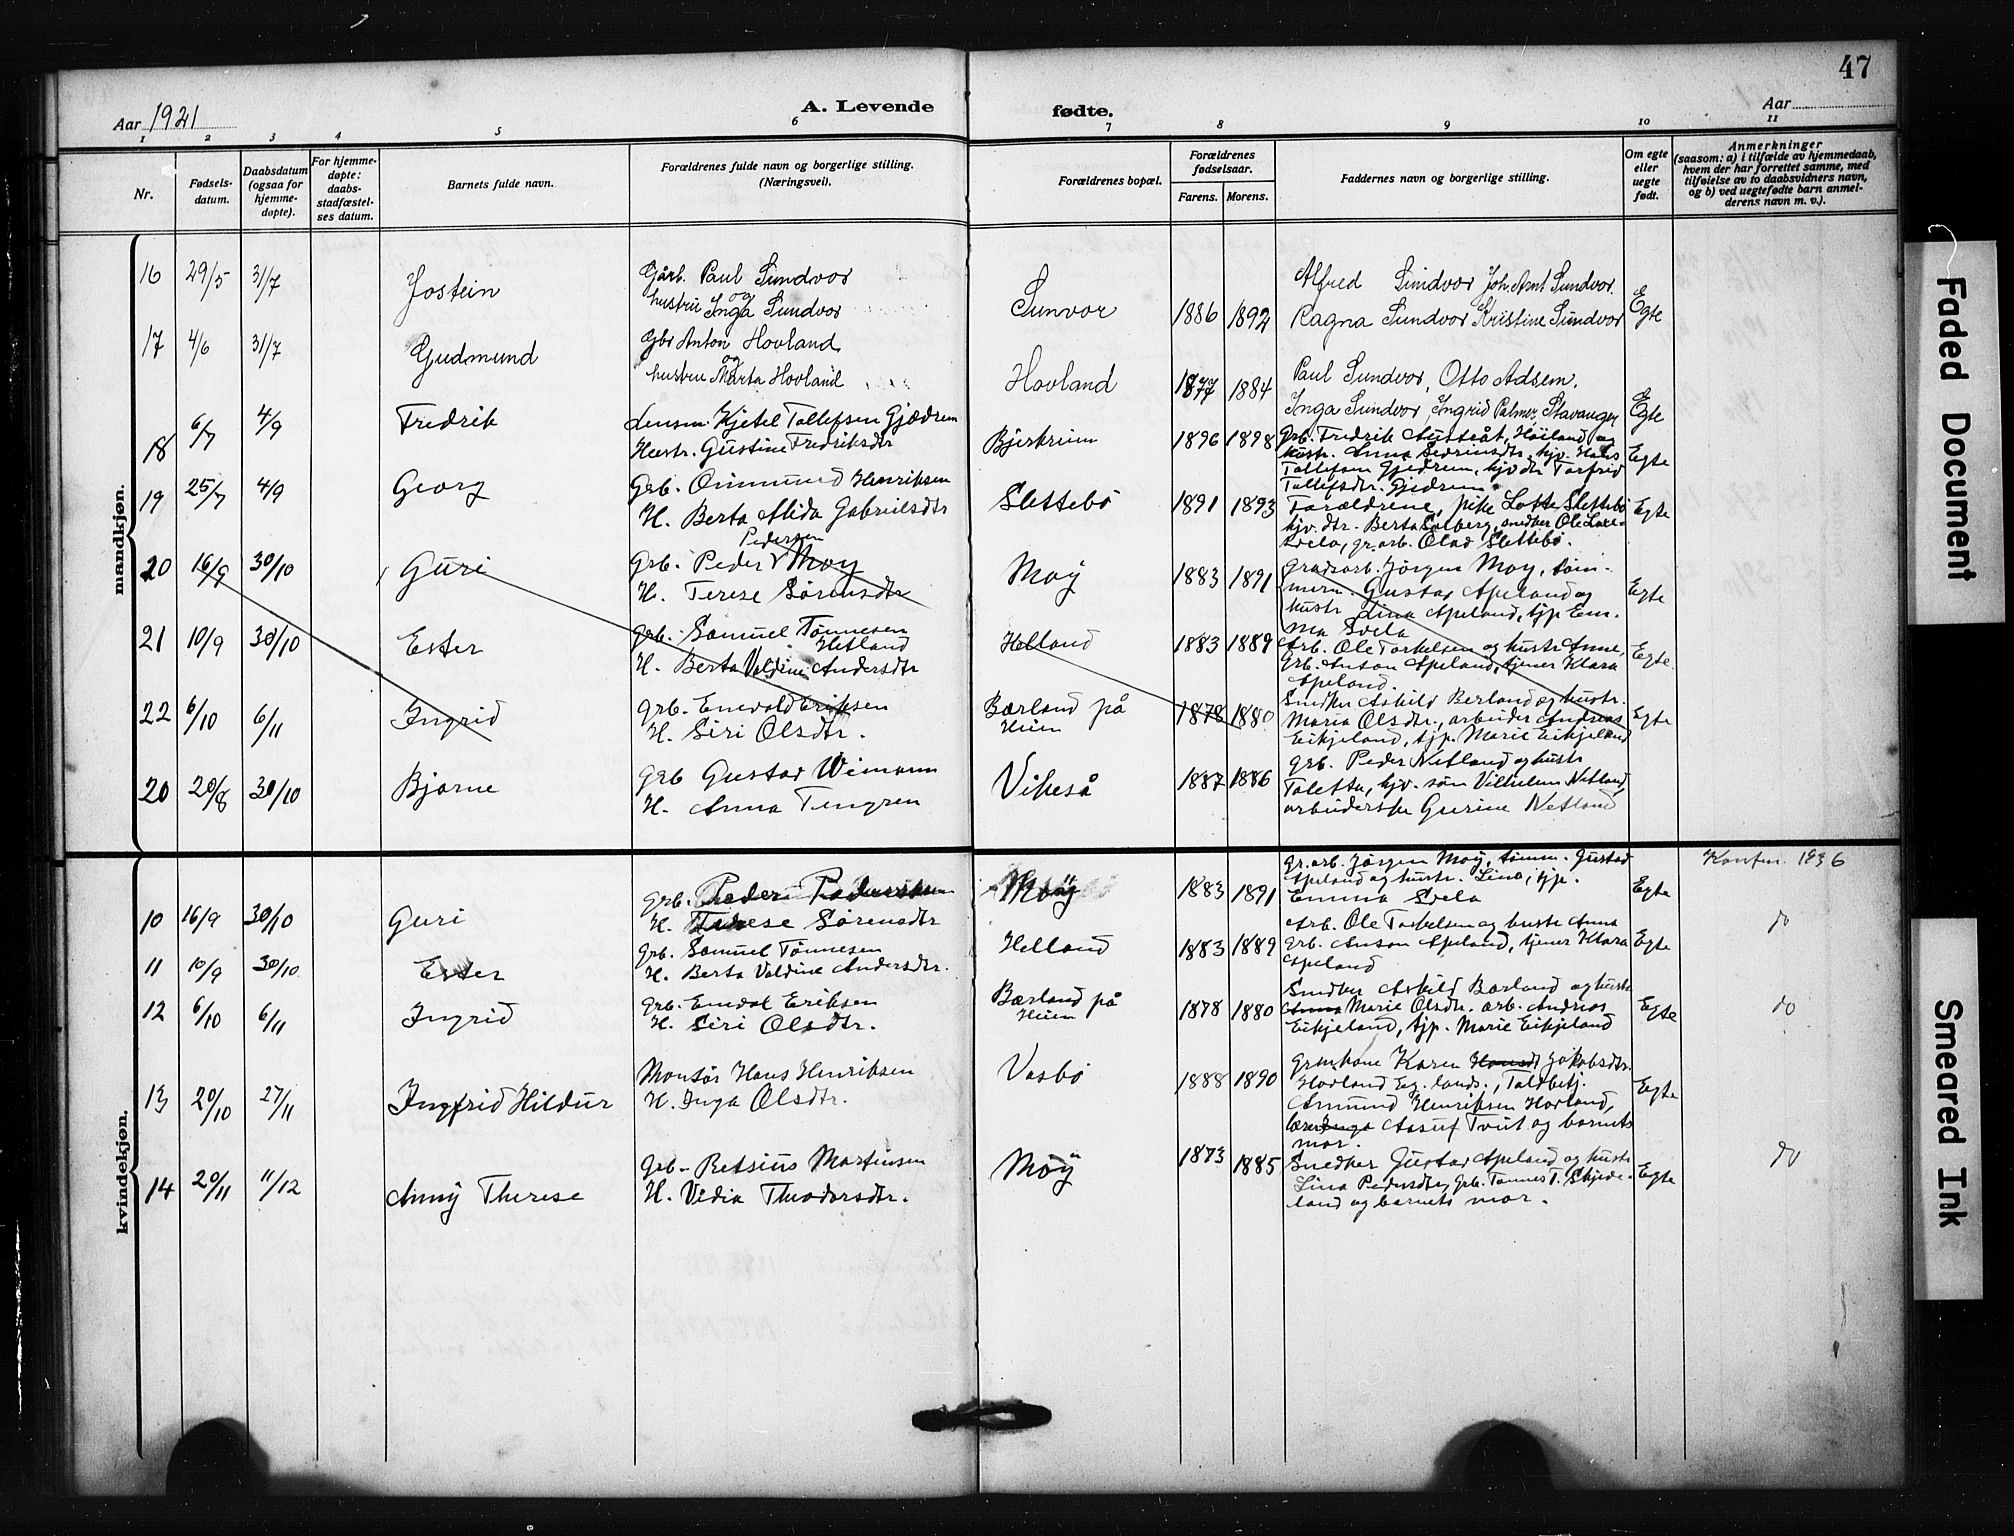 47
Aar 1921
A. Levende
fødte.
Aar
1 2 3 4 5 6 7 8 9 10 11
Nr.
Fødsels-
datum.
Daabsdatum
(ogsaa for
hjemme-
døpte).
For hjemme-
døpte:
daabs-
stadfæstel-
ses datum.
Barnets fulde navn.
Forældrenes fulde navn og borgerlige stilling.
(Næringsvei).
Forældrenes bopæl.
Forældrenes
fødselsaar.
Farens. Morens.
Faddernes navn og borgerlige stilling.
Om egte
eller
uegte
født.
Anmerkninger
(saasom: a) i tilfælde av hjemmedaab,
hvem der har forrettet samme, med
tilføielse av to daabsvidners navn,
og b) ved uegtefødte barn anmel-
derens navn m. v.).
mandkjøn.
16 29/5 31/7 Jostein
Gårb. Paul Sundvor
og
hustru Inga Sundvor
Sunvor 1886 1892
Alfred Sundvor Joh. Arnt Sundvor
Ragna Sundvor Kristine Sundvor
Egte
17 4/6 31/7 Gudmund
Gbr Anton Hovland
og
hustru Marta Hovland
Hovland 1877 1884
Paul Sundvor, Otto Adsem.
Inga Sundvor, Ingrid Palmer, Stavanger
Egte
18 6/7 4/9 Fredrik
Lensm. Kjetel Tollefsen Gjedrem
Hustr. Gustine Fredriksdtr
Bjerkreim 1896 1898
Grb. Fredrik Austråt, Høiland og
hustr. Anna Sedrinsdtr, hjv. Hans
Tollefsen Gjedrem, hjv dtr Torfrid
Tollefsdtr. Gjedrem
Egte
19 25/7 4/9 Georg
Grb. Ommund Henriksen
H. Berta Alida Gabrielsdtr
Slettebö 1891 1893
Forældrene, pike Lotte Slettebö
hjv. dtr. Berta Solberg, snedker Ole
Svela, gr.arb. Olad Slettebö.
Egte
20 16/9 30/10 Guri
Pedersen
Grb. Peder Moy
H. Terese Sørensdtr
Moy 1883 1891
Grdsarb. Jørgen Moy, töm-
merm. Gustav Apeland og
hustr Lina Apeland, tjp Em-
ma Svela
Egte
21 10/9 30/10 Ester
Grb. Samuel Tønnesen
Hetland
H. Berta Valdine Andersdtr
Helland 1883 1889
Arb. Ole Torkelsen og hustr Anne,
Grb. Anton Apeland, tjener Klara
Apeland.
Egte
22 6/10 6/11 Ingrid
Grb. Enevold Eriksen
H. Siri Olsdtr.
Bærland på
Heien
1878 1880
Snedker Askild Berland og hustr.
Maria Olsdtr., arbeider Andreas
Eikjeland, tjp. Marie Eikjeland
Egte
20 20/8 30/10 Bjarne
Grb Gustav Weimann
H. Anna Tengren
Vikeså 1887 1886
Grb. Peder Netland og hustr
Toletta, hjv. søn Vilhelm Netland,
arbeiderske Gurine Netland
kvindekjøn.
10 16/9 30/10 Guri
Grb. Peder Pedersen
H. Terese Sørensdtr
Moy 1883 1891
gr.arb. Jørgen Moy, tömm. Gustav
Apeland og hustr. Lina, tjp.
Emma Svela
Egte
Konfm. 1936
11 10/9 30/10 Ester
Grb. Samuel Tønnesen
H. Berta Valdine Andersdtr.
Helland 1883 1889
Arb. Ole Torkelsen og hustr Anna
Grb. Anton Apeland, tjener Klara
Apeland
Egte
do
12 6/10 6/11 Ingrid
Grb. Enevol Eriksen
H. Siri Olsdtr.
Bærland på
Heien
1878 1880
Snedker Askild Bærland og hustr
Anna Marie Olsdtr. arb. Andreas
Eikjeland, tjp. Marie Eikjeland
Egte
do
13 20/10 27/11 Ingfrid Hildur
Montör Hans Henriksen
H. Inga Olsdtr.
Vasbö 1888 1890
Grmkone Karen Jakobsdtr.
Hovland Eg. lands., Toldbetj.
Amund Henriksen Hovland,
Aasulf Tveit og barnets
mor.
Egte
14 20/11 11/12 Anny Therese
Grb- Retsius Martinsen
H. Vidia Theodorsdtr.
Moy 1873 1885
Snedker Gustav Apeland og hustr
Lina Pedersdtr, Grb. Tønnes T. Skjæve-
land og barnets mor.
Egte
do
Faded Document
Smeared Ink